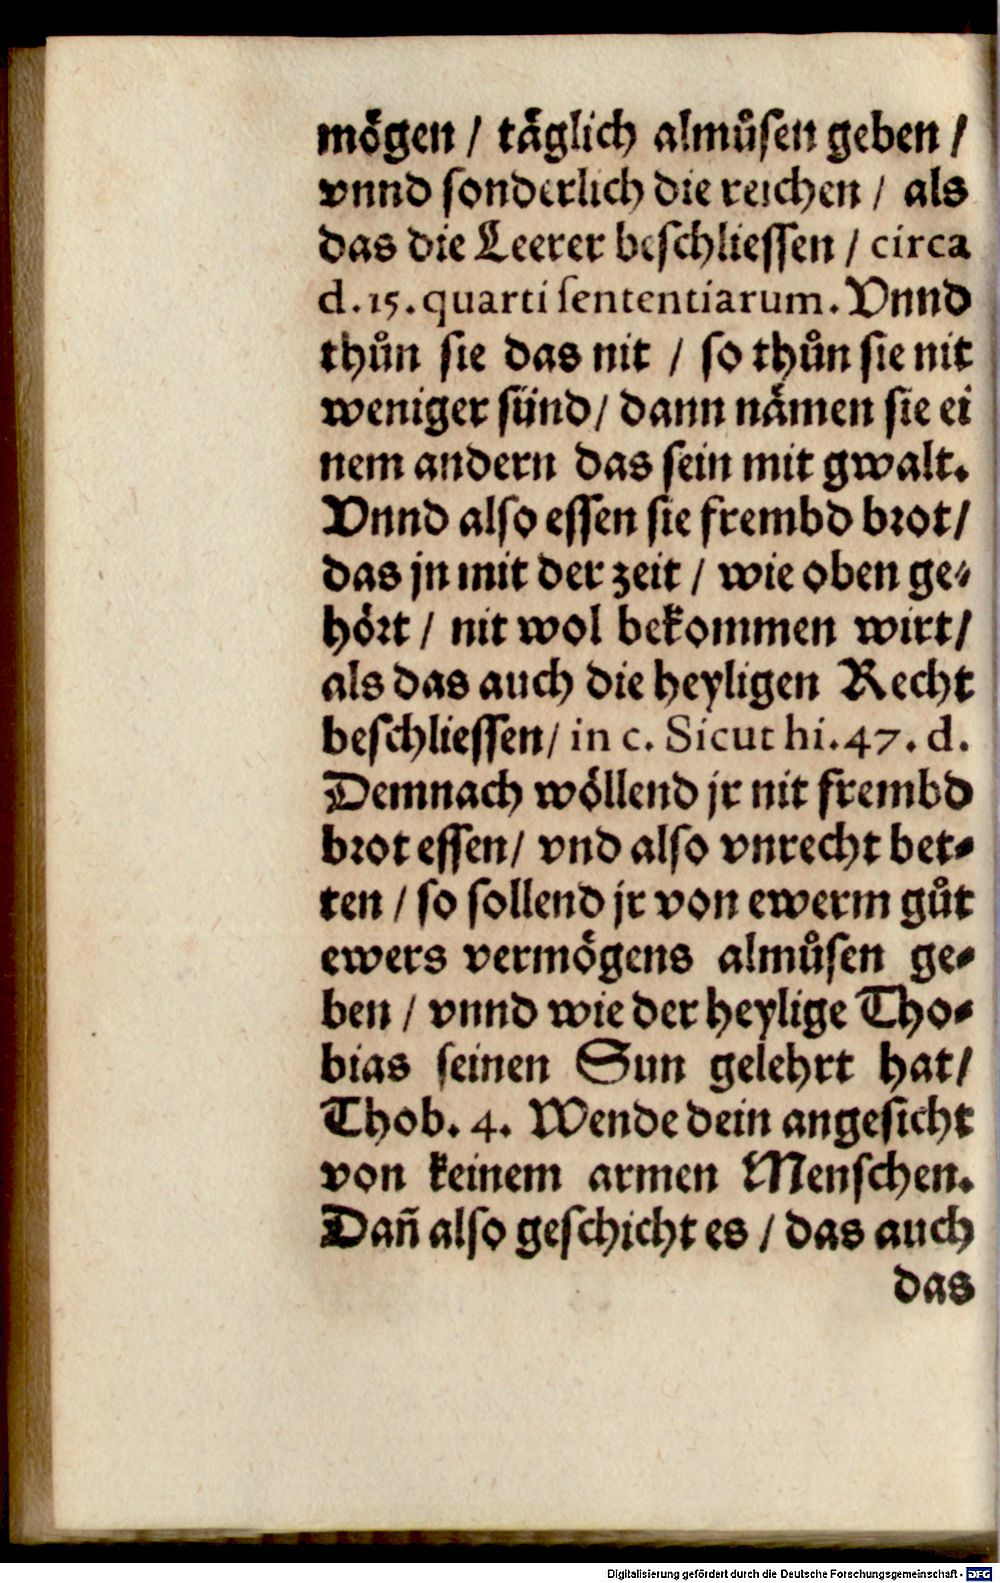 mögen / täglich almůsen geben /
vnnd sonderlich die reichen / als
das die Leerer beschliessen / circa
d. 15. quarti sententiarum. Vnnd
thůn sie das nit / so thůn sie nit
weniger sünd / dann nämen sie ei
nem andern das sein mit gwalt.
Vnnd also essen sie frembd brot /
das jn mit der zeit / wie oben ge-
hört / nit wol bekommen wirt /
als das auch die heyligen Recht
beschliessen / in c. Sicut hi. 47. d.
Demnach wöllend jr nit frembd
brot essen / vnd also vnrecht bet-
ten / so sollend jr von ewerm gůt
ewers vermögens almůsen ge-
ben / vnnd wie der heylige Tho-
bias seinen Sun gelehrt hat /
Thob. 4. Wende dein angesicht
von keinem armen Menschen.
Dañ also geschicht es / das auch
das
Digitalisierung gefördert durch die Deutsche Forschungsgemeinschaft - DFG